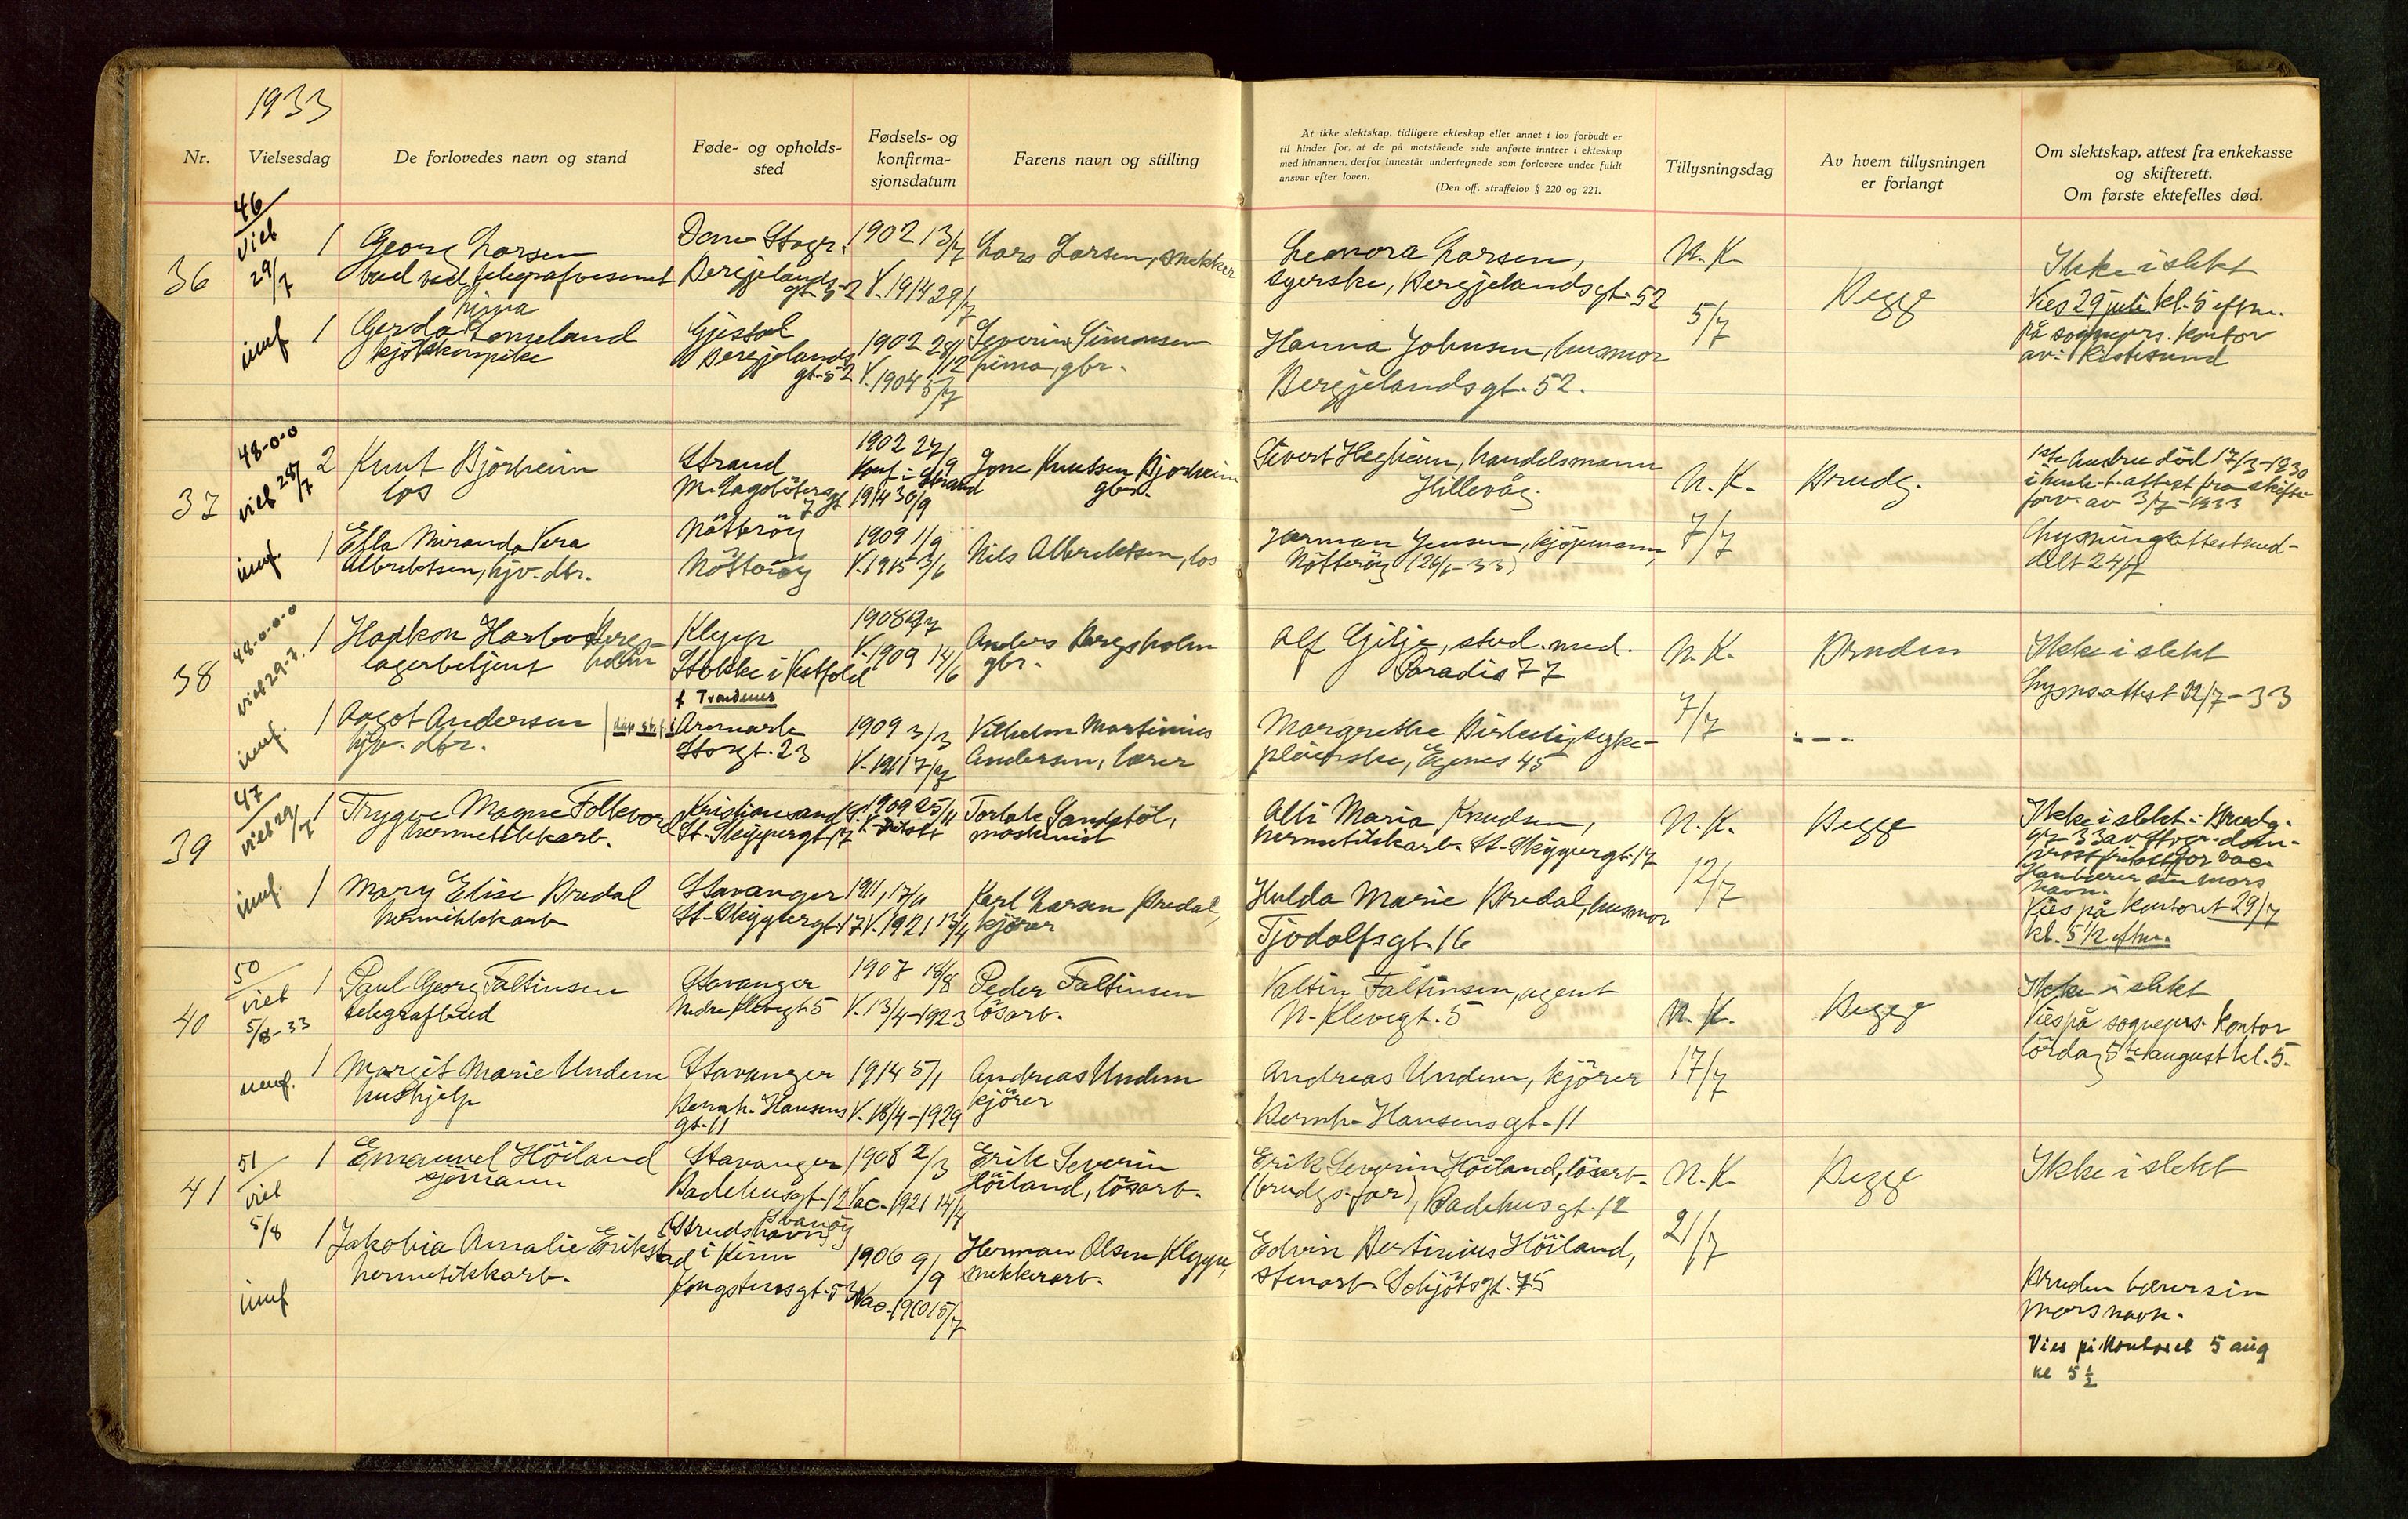 1933
Nr.
Vielsesdag
De forlovedes navn og stand
Føde- og opholds-
sted
Fødsels- og
konfirma-
sjonsdatum
Farens navn og stilling
At ikke slektskap, tidligere ekteskap eller annet i lov forbudt er
til hinder for, at de på motstående side anførte inntrer i ekteskap
med hinannen, derfor innestår undertegnede som forlovere under fuldt
ansvar efter loven.
(Den off. straffelov § 220 og 221.
Tillysningsdag
Av hvem tillysningen
er forlangt
Om slektskap, attest fra enkekasse
og skifterett.
Om første ektefelles død.
36
46
viet
29/7
innf
1 Georg Larsen
bud ved telegrafvesenet
Dom. Stvgr.
Bergjelands
gt. 52
1902 13/7
V. 1914 29/7
Lars Larsen, snekker
Leonora Larsen,
syerske, Bergjelandsgt. 52
N. K.
5/7
Begge
Ikke i slekt
Vies 29 juli kl. 5 eftm.
på sogneprs. kontor
av
1 Gerda
kjøkkenpike
Gjestal
Bergjelands
gt. 52
1902 28/12
V. 1904 5/7
Severin Simonsen
gbr.
Hanna Johnsen, husmor
Bergjelandsgt. 52.
37
48-0-0
viet 28/7
innf.
2 Knut Bjørheim
los
Strand
1902 27/9
Konf. i Strand
1914 30/9
Jone Knutsen Bjørheim
gbr.
Sivert Hegheim, handelsmann
Hillevåg.
N. K.
7/7
Brudg.
1ste hustru død 17/3-1930
attest fra skifte-
forv. av 3/7-1933
1 Ella Miranda Vera
Albrektsen, hjv. dtr.
Nötteröy
Nötteröy
1909 1/9
V. 1915 3/6
Nils Albrektsen, los
Herman Jensen, kjøpmann,
Nötteröy (26/6-33)
Lysningsattest med-
delt 24/7
38
48-0-0-0
viet 29-7.
innf.
1 Haakon Harbo Bergs-
holm
lagerbetjent
Klepp
Stokke i Vestfold
V. 1909 14/6
Anders Bergsholm
gbr.
Alf Gilje, stud. med.
Paradis 77
N. K.
7/7
Bruden
Ikke i slekt
Lysns.attest 22/7-33
1 Aagot Andersen
hjv. dtr.
f. Trondenes
Aremark
Storgt. 23
1909 3/3
Vilhelm Martinius
Andersen, lærer
Margrethe Birkeli, syke-
pleierske, Egenes 45
39
47
viet 29/7
innf.
1 Trygve Magne Folkvord
hermetikkarb.
Kristiansand S.
St. Skippergt. 17
1909 25/11
Torlak Sandstöl,
maskinist
Alti Maria Knudsen,
hermetikkarb. St. Skippergt. 17
N. K.
12/7
Begge
Ikke i slekt. Brudg.
Han bærer sin mors
navn.
Vies på kontoret 29/7
kl. 5 1/2 eftm.
1 Mary Elise Bredal
hermetikkarb
Stavanger
St. Skippergt. 17
1911, 17/11
V. 1921 13/4
Karl Larsen Bredal,
kjører
Hulda Marie Bredal, husmor
Tjodolfsgt. 16
40
50
viet
5/8-33
innf.
1 Paul Georg Faltinsen
telegrafbud
Stavanger
Nedre Klevegt 5
1907 18/8
V. 13/4-1923
Peder Faltinsen
lösarb.
Valtin Faltinsen, agent
N. Klevegt. 5
N. K.
17/7
Begge
Ikke i slekt
Vies på sogneprs. kontor
lördag 5te august kl. 5.
1 Margit Marie Undem
hushjelp
Stavanger
Bernh. Hansens
gt. 11
1914 5/1
V. 18/4-1929
Andreas Undem
kjörer
Andreas Undem, kjörer
Bernh. Hansensgt. 11
41
51
viet
5/8
innf
1 Emanuel Höiland
sjömann
Stavanger
Badehusgt. 12
1908 2/3
Vac. 1921 14/4
Erik Severin
Höiland, lösarb.
Erik Severin Höiland, lösarb.
(brudgs. far), Badehusgt. 12
N. K.
21/7
Begge
Ikke i slekt
1 Jakobia Amalie Erikstad
hermetikkarb.
Svanöy
i Kinn
Kongstensgt. 53
1906 9/9
Vac. 1910 15/7
Herman Olsen Klepp,
snekkerarb.
Edvin Bertinius Höiland,
stenarb. Schjötsgt. 75
Bruden bærer sin
mors navn.
Vies på kontoret 5 aug
kl 5 1/2